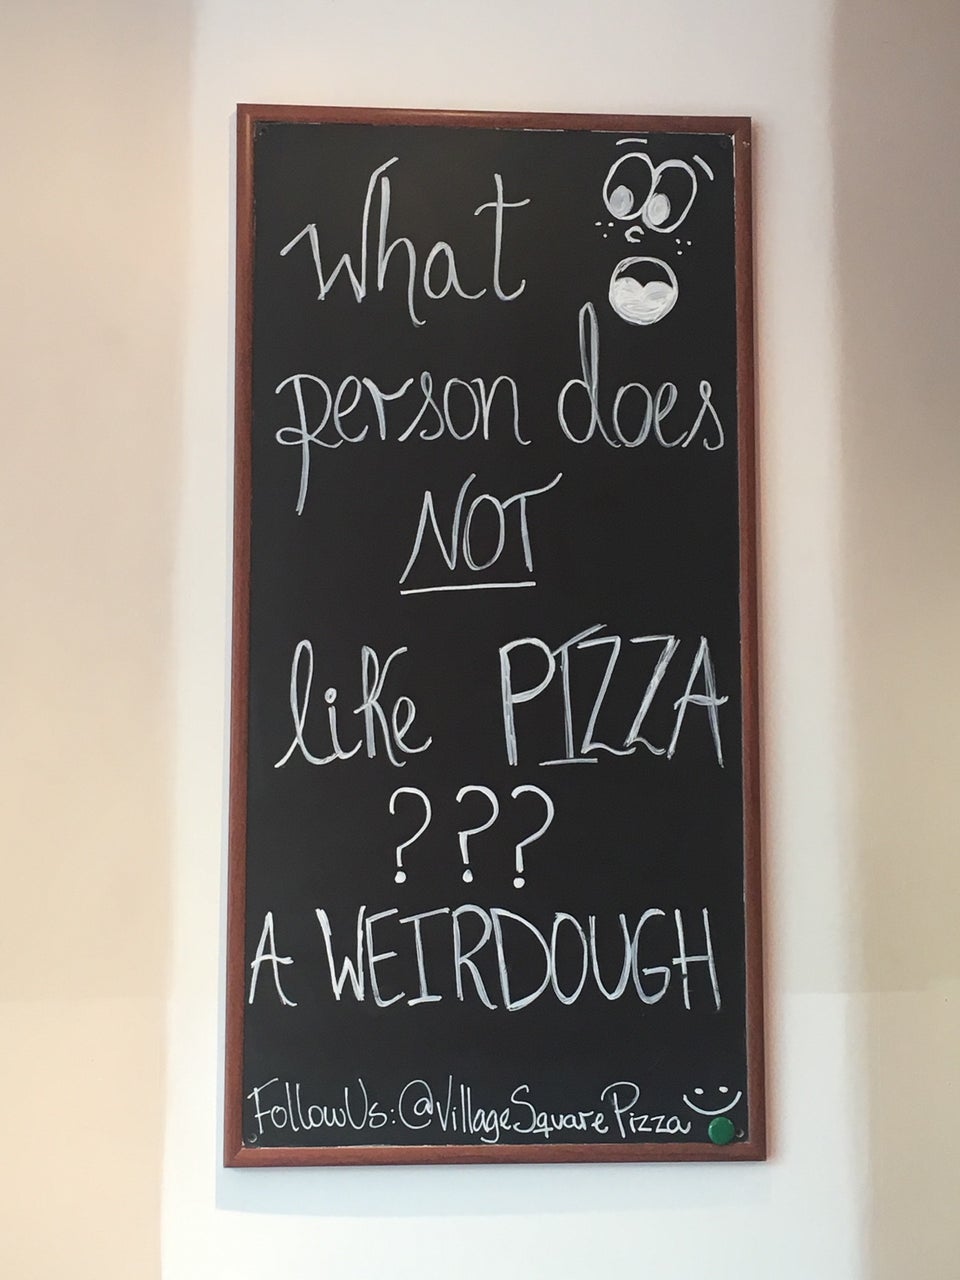 What
person does
NOT
like PIZZA
???
A WEIRDOUGH
Follow Us: @VillageSquarePizza